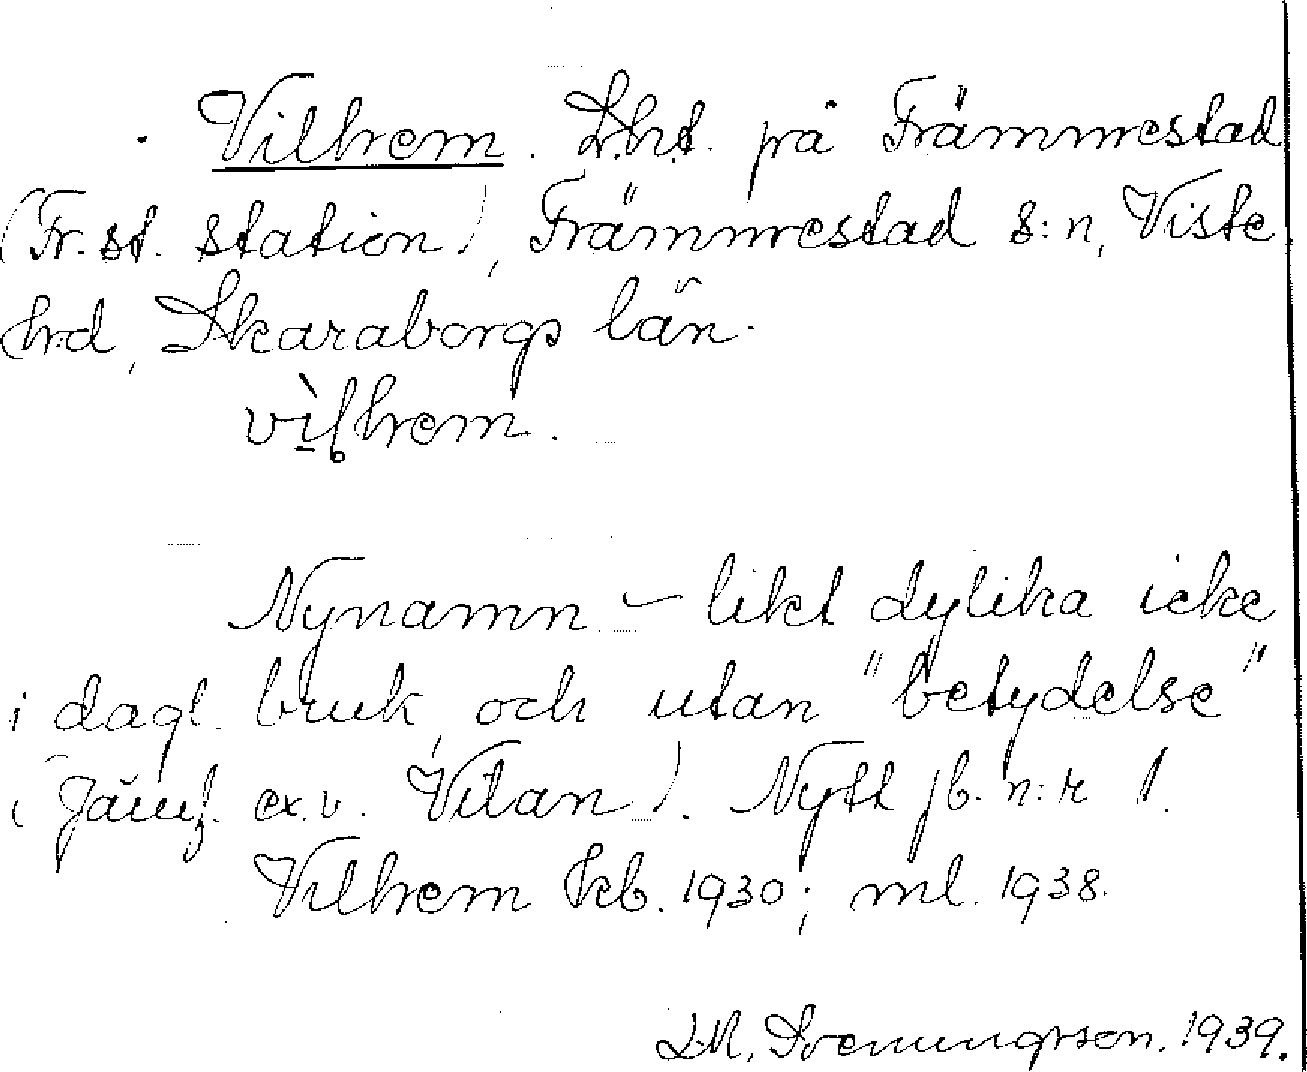 Vilhem. Lht. på Främmestad
(Fr.st. station), Främmestad s:n, Viste
hrd, Skaraborgs län.
vìlhem.
Nynamn – likt dylika icke
i dagl. bruk, och utan "betydelse"
(Jämf. ex.v. Vilan). Nytt jb. n:r 1.
Vilhem kb. 1930; ml. 1938.
Svenungsson. 1939.